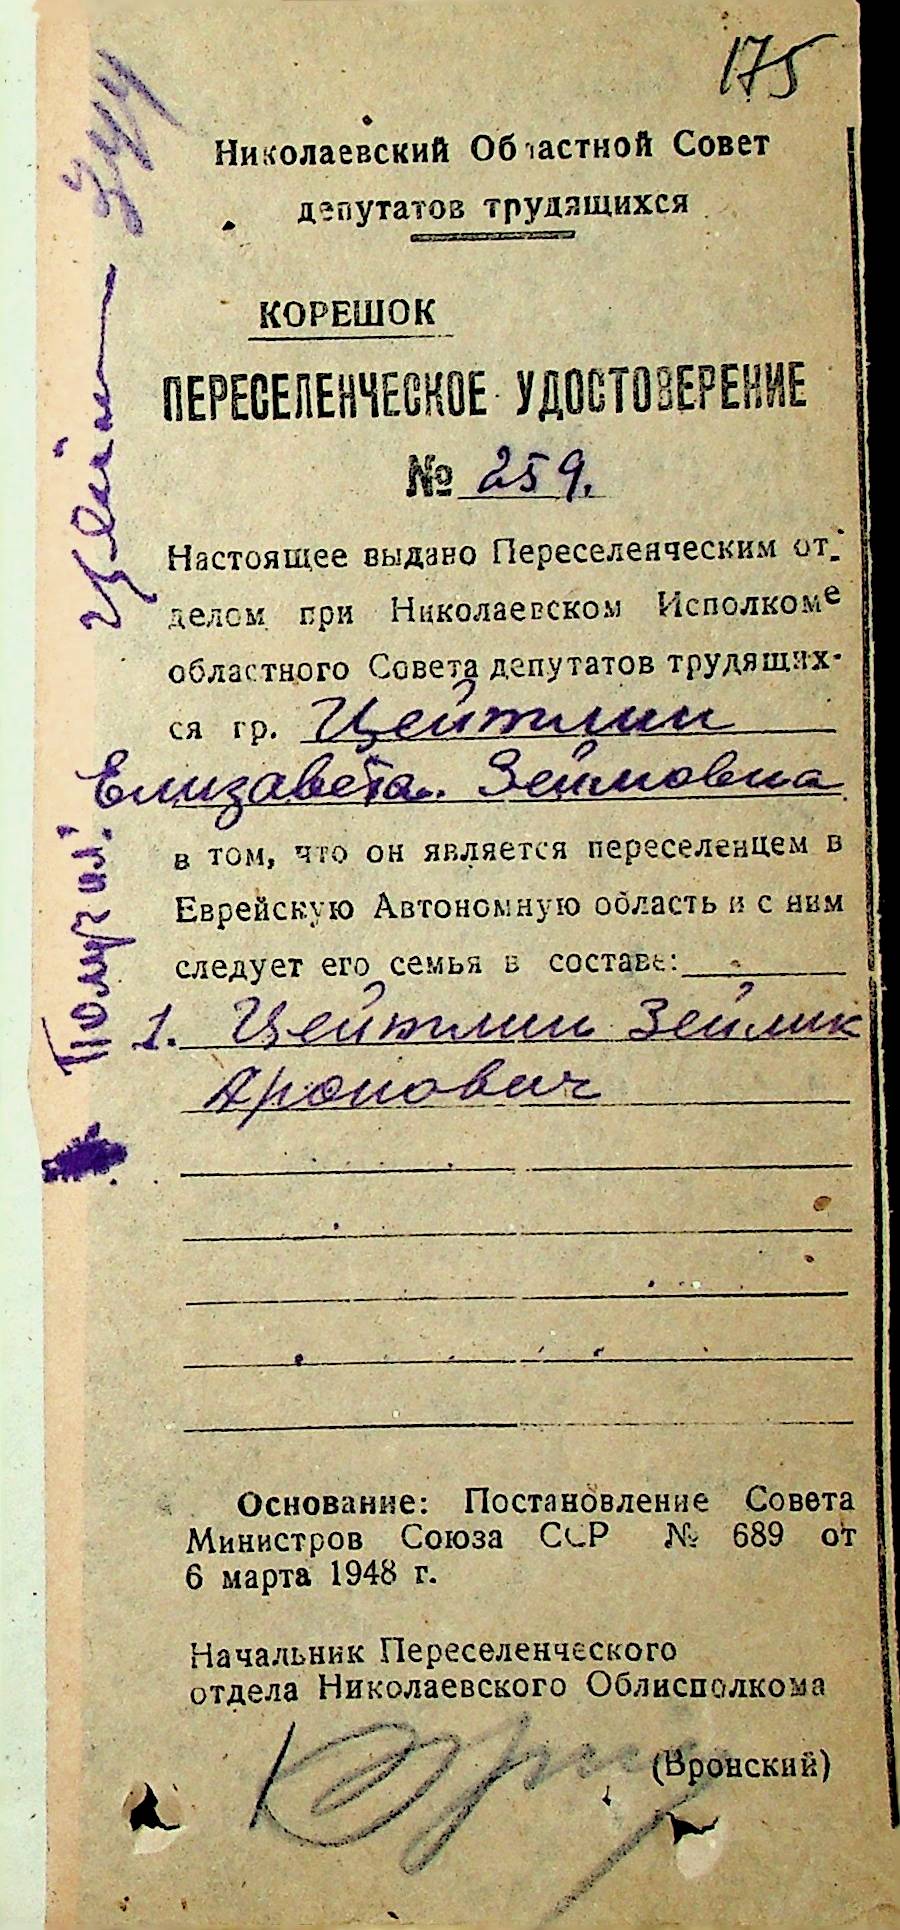 175
Николаевский Областной Совет
депутатов трудящихся
КОРЕШОК
ПЕРЕСЕЛЕНЧЕСКОЕ УДОСТОВЕРЕНИЕ
№ 259.
Настоящее выдано Переселенческим от-
делом при Николаевском Исполкоме
областного Совета депутатов трудящих-
ся гр. Цейтлин
Елизавета Зеймовна
в том, что он является переселенцем в
Еврейскую Автономную область и с ним
следует его семья в составе:
1. Цейтлин Зейлик
Аронович
Основание: Постановление Совета
Министров Союза ССР № 689 от
6 марта 1948 г.
Начальник Переселенческого
отдела Николаевского Облисполкома
(Вронский)
Получил: